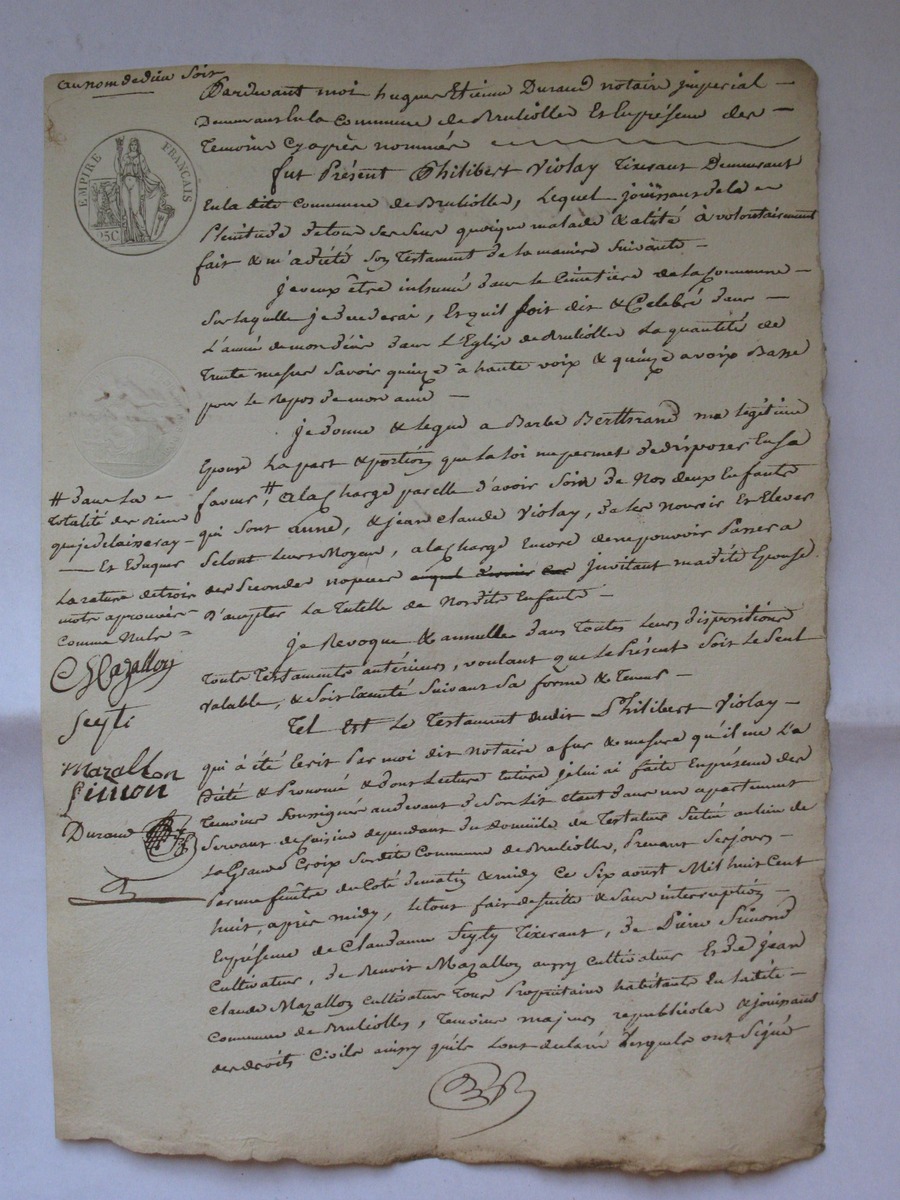 au nom de dieu soit
Pardevant moi hugues Etienne Durand notaire jmperial
Demeurant En la Commune de Brullioller Et En présence des
Temoins Cy après nommés
EMPIRE FRANÇAIS
75C
fut Présent Philibert Violay Tixerant Demeurant
En la dite Commune de Brulliolle, Lequel joüissant de la
Plenitude de tous ses sens quoique malade & alité à volontairement
fait & m'a dicté son Testament de la maniere suivante
je veux être inhumé dans le Cimetiere de la Commune
Sur laquelle je decederai, Et quil soit dit & Celebré dans
L'année de mon décès dans L'Eglise de Brulliolle La quantité de
Trente messes Savoir quinze à haute voix & quinze a voix Basse
pour le repos de mon ame
je donne & legue a Barbe Berthrand ma legitime
Epouse La part & portion que la loi me permet de disposer En sa
faveur, # a la charge par elle d'avoir soin de Nos deux Enfants
qui sont anne, & jean Claude Violay, de les nourir Et Elever
Selont leurs Moyens, a la charge Encore de ne pouvoir Passer a
des secondes nopces jnvitant madite Epouse
D'accepter La Tutelle de Nosdits Enfants
# dans La
Totalité des Biens
que je delaisseray
Et Eduquer
La rature de trois
mots aprouvée
Comme Nule
je Revoque & annulle dans Toutes Leurs dispositions
Toute Testaments antérieurs, voulant que Le Présent Soit Le Seul
valable, & Soit Exécuté Suivant Sa forme & Teneur
Mazallon
Seyti
Mazallon
Simon
Durand
Tel Est Le Testament dudit Philibert Violay
qui à été Ecrit Par moi dit Notaire a fur & mesure qu'il me L'a
dicté & Prononcé & dont Lecture Entiere je lui ai faite En présence des
Temoins Soussignés au devant de Son Lit étant dans un apartement
Servant de Cuisine dependant du domicile du Testateur Situé au lieu de
La Grande Croix Sur dite Commune de Brulliolle, Prenant Ses jours
Par une fenêtre du Coté de matin & midy Ce Six aoust Mil huit Cent
huit, après midy, Le tout fait de suitte & Sans interruption
En présence de Claudanne Seyty Tixerant, de Pierre Simond
Cultivateur, de Benoit Mazallon aussy Cultivateur Et de jean
Claude Mazallon Cultivateur Tous Proprietaires habitants En la dite
Commune de Brulliolles, Temoins majeurs republicoles & jouissant
des droits Civils ainsy qu'ils L'ont declaré Lesquels ont Signé